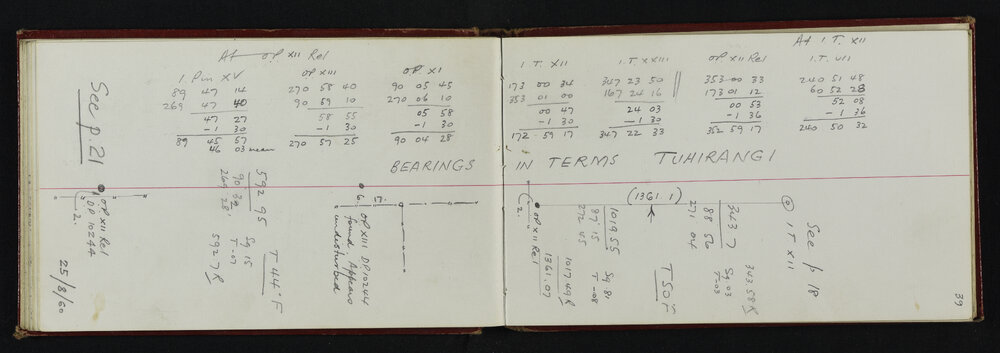 At OP XII Rel
I Pin XV
89 47 14
269 47 40
47 27
-1 30
89 45 57
46 03 mean
OP XIII
270 58 40
90 59 10
58 55
-1 30
270 57 25
OP. XI
90 05 45
270 06 10
05 58
-1 30
90 04 28
See p 21
At I T. XII
I T. XII
173 00 34
353 01 00
00 47
-1 30
172 59 17
I.T XXIII
347 23 50
167 24 16
24 03
-1 30
347 22 33
OP XII Rel
353 00 33
173 01 12
00 53
-1 36
352 59 17
I.T. VII
240 51 48
60 52 28
52 08
-1 36
240 50 32
BEARINGS IN TERMS TUHIRANGI
OP XII Rel
DP 10244
2.
25/8/60
592 95
90 32
269 28
Sg 15
T-07
592.7 R
T 44°F
6. 17.
OP XIII DP10244
found. Appears
undisturbed
2.
OP XII Rel
1361.07
1019 55
87 15
272 45
Sg 81
T-08
1017 49 R
(1361.1)
T 50 F
343 7
88 50
271 04
Sg 03
T-03
343 58 R
I T XII
See p 18
39